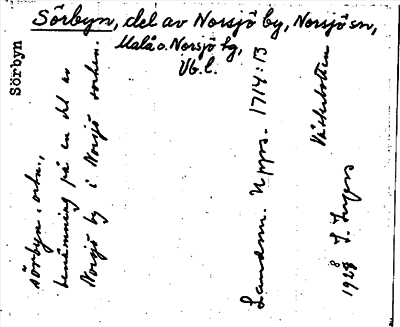 Sörbyn, del av Norsjö by, Norsjö sn,
Malå o. Norsjö tg,
Vb. l.
Sörbyn
sörbyn, ortn.,
benämning på en del av
Norsjö by i Norsjö socken.
Landsm. Upps. 1714:13
Västerbotten
1928 J.